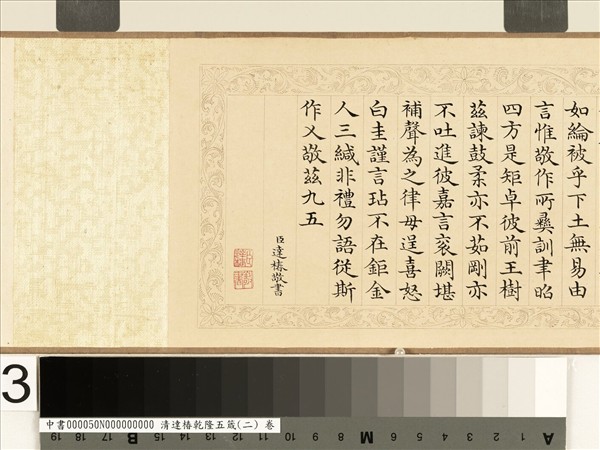 如綸被乎下土無易由
言惟敬作所彝訓聿昭
四方是矩卓彼前王樹
茲諫鼓柔亦不茹剛亦
不吐進彼嘉言袞闕堪
補聲為之律毋逞喜怒
白圭謹言玷不在鉅金
人三緘非禮勿語從斯
作乂敬茲九五
臣達椿敬書
3
中書000050N000000000 清達椿乾隆五箴(二) 卷
19 18 17 16 15 B 12 11 10 9 8 M 6 5 4 3 2 1 A